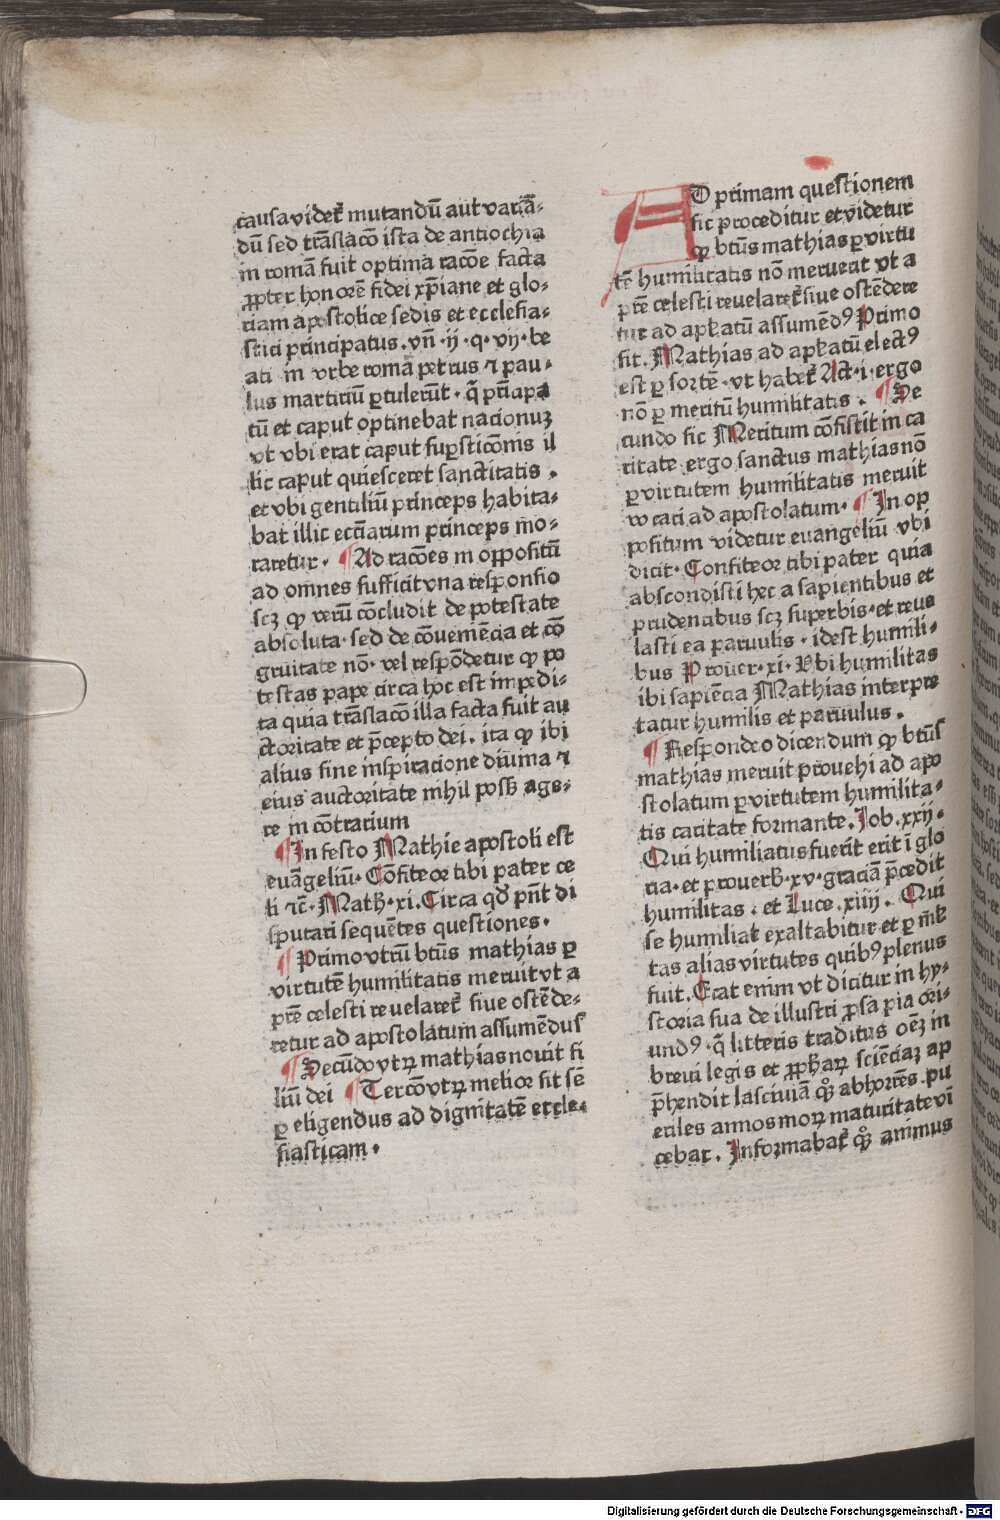 causa videt᷑ mutandū aut variā-
dū sed trāslacō ista de antiochia
in romā fuit optima racōe facta
ꝓpter honorē fidei xp̄iane et glo-
riam apostolice sedis et ecclesia-
stici principatus. vn̄ ·ij· q· vij· be
ati in vrbe romā petrus ⁊ pau-
lus martiriū ꝑtulerūt · q̄ prīcipa
tū et caput optinebat nacionuꝫ
vt vbi erat caput suꝑsticōnis il
lic caput quiesceret sanctitatis .
et vbi gentiliū princeps habita-
bat illic ecciarum princeps mo-
raretur · ¶ Ad racōes in oppositū
ad omnes sufficit vna responsio
scꝫ ꝙ verū cōcludit de potestate
absoluta· sed de cōueniēcia et cō
gruitate nō· vel respōdetur ꝙ po
testas pape circa hoc est impedi-
ta quia trāslacō illa facta fuit au
ctoritate et p̄cepto dei . ita ꝙ ibi
alius sine inspiracione diuina ⁊
eius auctoritate nihil possꝫ age-
re in cōtrarium
¶ In festo Mathie apostoli est
euāgeliū· Cōfiteor tibi pater ce
li ⁊c̄· Math· xi. Circa qd̓ pn̄t di
sputari sequētes questiones ·
¶ Primo vtrū btūs mathias ꝑ
virtutē humilitatis meruit vt a
prē celesti reuelaret᷑ siue ostēde-
retur ad apostolatum assumēdus
¶ Secūdo vtꝝ mathias nouit fi
liū dei ¶ Tercō vtꝝ melior sit sē
ꝑ eligendus ad dignitatē eccle-
siasticam ·
AD primam questionem
sic proceditur et videtur
ꝙ btūs mathias ꝑ virtu
tē humilitatis nō meruerit vt a
prē celesti reuelaret᷑ siue ostēdere
tur ad apl̄atū assumēdꝰ Primo
sic. Mathias ad apl̄atū electꝰ
est ꝑ sortē · vt habet᷑ Act· i· ergo
nō ꝑ meritū humilitatis . ¶ Se
cundo sic Meritum cōsistit in ca
ritate ergo sanctus mathias nō
ꝑ virtutem humilitatis meruit
vocari ad apostolatum· ¶ In op
positum videtur euangeliū vbi
dicit · Confiteor tibi pater quia
abscondisti hec a sapientibus et
prudentibus scꝫ superbis· et reue
lasti ea paruulis · idest humili-
bus Prouer· xi · Vbi humilitas
ibi sapiēcia Mathias interpre
tatur humilis et paruulus .
¶ Respondeo dicendum ꝙ btūs
mathias meruit prouehi ad apo
stolatum ꝑ virtutem humilita-
tis caritate formante. Iob. xxij·
Qui humiliatus fuerit erit ī glo
ria · et prouerb· xv· graciā p̄cedit
humilitas . et Luce . xiiij . Qui
se humiliat exaltabitur et ꝑ mlꝉ
tas alias virtutes quibꝰ plenus
fuit. Erat enim vt dicitur in hy-
storia sua de illustri ꝓsapia ori-
undꝰ · q̄ litteris traditus oēꝫ in
breui legis et ꝓph̄arꝝ sciēciaꝫ ap
p̄hendit lasciuiā qꝫ abhorrēs pu
eriles annos morꝝ maturitate vī
cebat . Informabat᷑ qꝫ animus
Digitalisierung gefördert durch die Deutsche Forschungsgemeinschaft - DFG